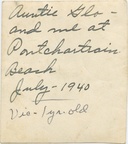 Auntie Glo-
and me at
Pontchartrain
Beach
July - 1940
Vis - 1 yr. old